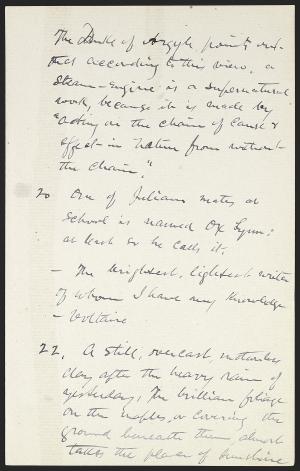 The Duke of Argyle points out
that according to this view, a
steam-engine is a supernatural
work, because it is made by
"acting on the chain of cause &
effect in Nature from without
the chain."
20 One of Julian's mates at
school is named Ox Lynn:
at least so he calls it.
— The brightest, lightest writer
of whom I have any knowledge
— Voltaire
22. A still, overcast
day after the heavy rain of
yesterday. The brilliant foliage
on the maples, or covering the
ground beneath them, almost
takes the place of sunshine